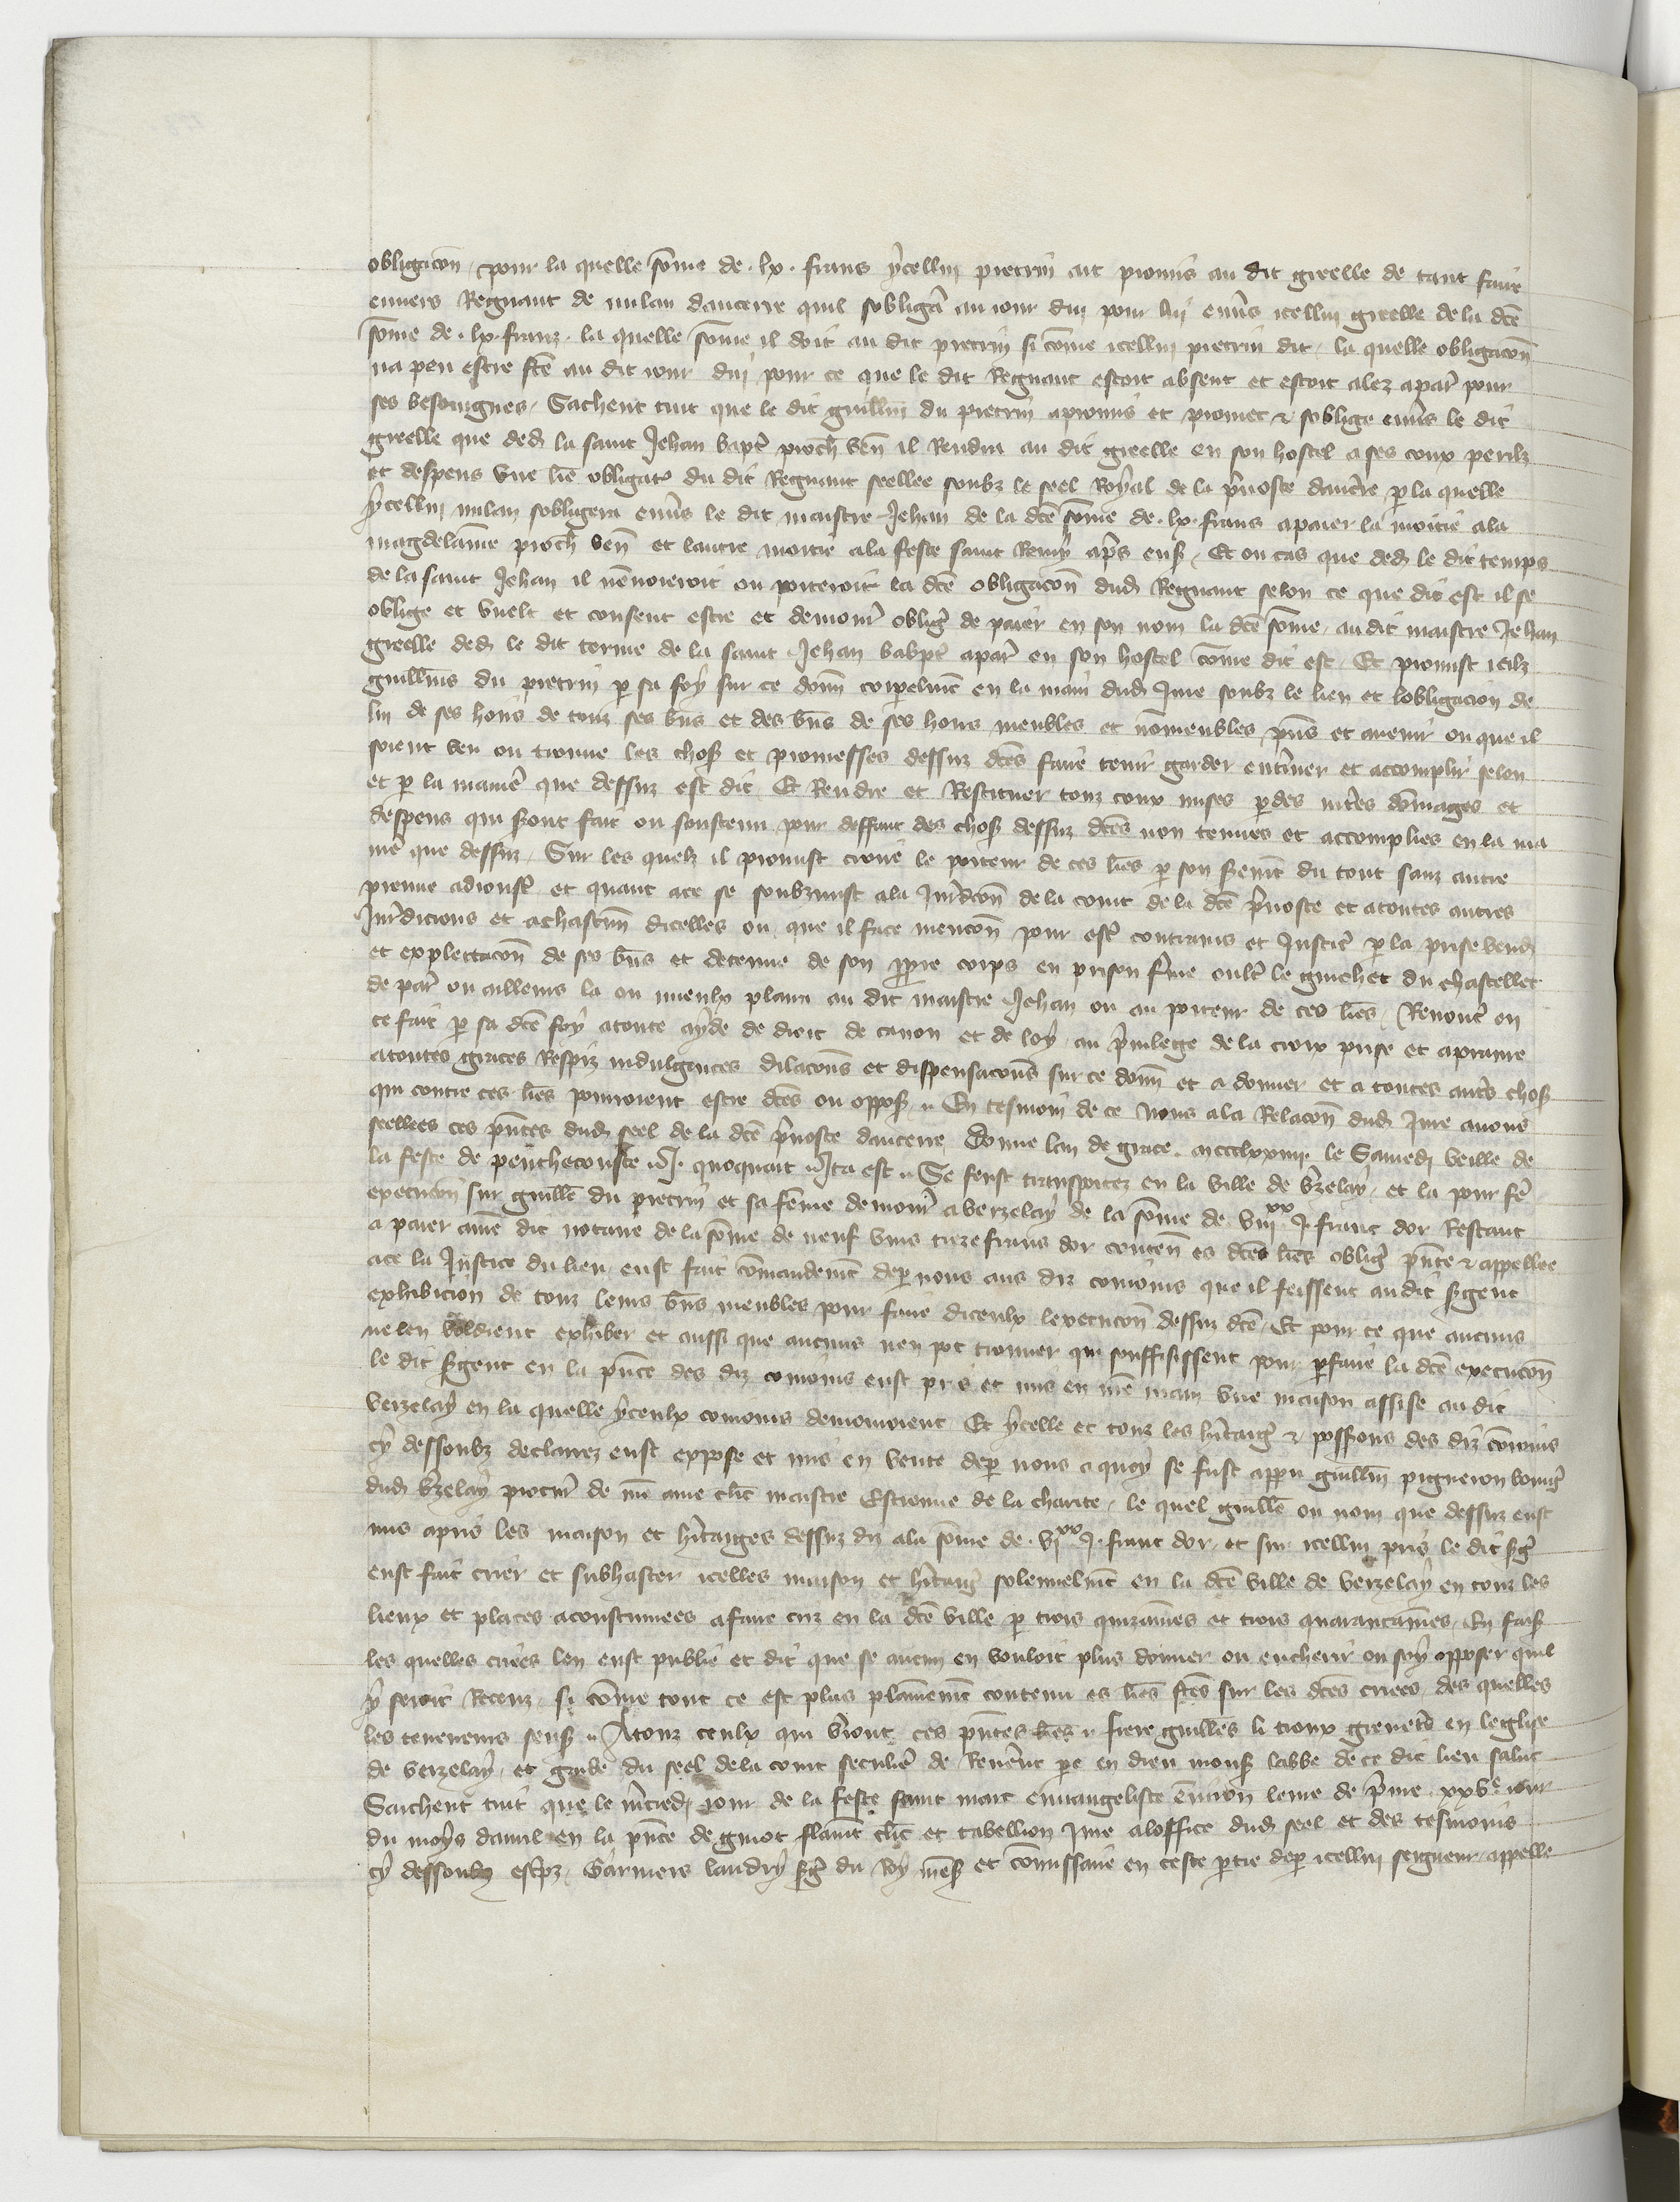 obligacōn pour la quelle sōme de .lx. frans ycellui pietrin ait promis au dit greelle de tant faire
enuers Regnaut de milan daucerre quil sobligāt au jour dui pour lui enūs icellui greelle de la dcē
sōme de .lx. franz. la quelle sōme il doit au dit pietrin si cōme icellui pietrin dit. la quelle obligacōn
na peu estre fcē au dit jour dui pour ce que le dit Regnaut estoit absent et estoit alez a par̄ pour
ses besoingnes. Sachent tuit que le dit guillm̄ du pietrin a promis et promet & soblige enūs le dit
greelle que dedz la saint Jehan bapt̄ proch̄ ven̄ il Rendra au dit greelle en son hostel a ses coux perilz
et despens vne lr̄e obligat̄ du dit Regnaut seellee soubz le seel Royal de la p̄uoste daucr̄re p̄ la quelle
ycellui milan sobligera enūs le dit maistre Jehan de la dcē sōme de .lx. frans a paier la moitie a la
magdelaine proch̄ ven̄ et lautre moitie a la feste saint Remy ap̄s ens̄. Et ou cas que dedz le dit temps
de la saint Jehan il nēuoieroit ou porteroit la dcē obligacōn dud̄ Regnaut selon ce que dit est il se
oblige et vuelt et consent estre et demour̄ obliḡ de paier en son nom la dcē sōme au dit maistre Jehan
greelle dedz le dit terme de la saint Jehan babpt̄ a par̄ en son hostel cōme dit est. Et promist icilz
guillm̄s du pietrin p̄ sa foy sur ce donn̄ corpelmt̄ en la main dud̄ Jure soubz le lien et lobligacion de
lui de ses hoirs de touz ses bn̄s et des bn̄s de ses hoirs meubles et nōmeubles p̄ns et auenir ou que il
soient veu ou trouue les chos̄ et promesses dessuz dcēs faire tenir garder enteriner et accomplir selon
et p̄ la manie᷑ que dessuz est dit. Et Rendre et Restituer touz coux mises p̄des intr̄es dōmages et
despens qui s̄ont fait ou soustenu pour deffaut des chos̄ dessuz dcēs non tenues et accomplies en la ma
nie᷑ que dessuz. Sur les quelz il promist croire le porteur de ces lr̄es p̄ son s̄remt̄ du tout sanz autre
preuue adioust̄ et quant a ce se soubzmist a la Jur̄dcōn de la court de la dcē p̄uoste et a toutes autres
Jur̄dicions et a chascun̄ dicelles ou que il face mencōn pour est̄ contrains et Justic̄ p̄ la prise vend̄
et explettacōn de ses bn̄s et detenue de son p̄pre corps en prison f̄me oult̄ le guichet du chastellet
de par̄ ou ailleurs la ou mieulx plaira au dit maistre Jehan ou au porteur de ces lr̄es. Renonc̄ en
ce fait p̄ sa dcē foy a toute ayde de droit de canon et de loy, au p̄uilege de la croix prise et a prame
a toutes graces Respiz indulgences dilacōns et dispensacōns sur ce donn̄ et a donner et a toutes aut̄s chos̄
qui contre ces lr̄es pourroient estre dcēs ou oppos̄ .. En tesmoin de ce Nous a la Relacōn dud̄ Jure auons
seellees ces pn̄tes dud̄ seel de la dcē p̄uoste daucerre, Donne lan de grace .mccclxxiiij. le Samedi veille de
la feste de pentheconste .. J. quoquart .. Ita est .. Se feust transportez en la ville de vzelay, et la pour fe᷑
execucōn sur guillē du pietrin et sa fēme demour̄ a verzelay de la sōme de viijxx j. franc dor Restant
a paier au me᷑ dit notaire de la sōme de neuf vins treze frans dor conten̄ es dcēs lr̄es obliḡ pn̄te & appellee
a ce la Justice du lieu eust fait cōmandemt̄ de p̄ nous aus diz conioins que il feissent au dit s̄gent
exhibicion de touz leurs bn̄s meubles pour faire diceulx lexecucōn dessuz dcē. Et pour ce que aucuns
ne len voldrent exhiber et aussi que aucuns nen pot trouuer qui souffisissent pour p̄faire la dcē execucōn
le dit s̄gent en la pn̄ce des diz conioins eust pris et mis en nr̄e main vne maison assise au dit
verzelay en la quelle yceulx conioins demouroient. Et ycelle et touz les hr̄itaiḡ & poss̄ions des diz cōioins
cy dessoubz declarez eust exposē et mis en vente de p̄ nous a quoy se fust appa guillm̄ pigneron bourḡ
dud̄ vzelay procur̄ de nr̄e ame clerc̄ maistre Estienne de la charite, le quel guillē ou nom que dessuz eust
mis a pris les maison et hr̄itaiges dessuz diz a la sōme de .vjxx j. franc dor, et sur icellui pris le dit s̄ḡ
eust fait crier et subhaster icelles maison et hr̄itaiḡ solennelmt̄ en la dcē ville de verzelay en touz les
lieux et places acoustumees a faire criz en la dcē ville p̄ trois quinzaines et trois quarantaines. En fais̄
les quelles criees len eust publie et dit que se aucun en vouloit plus donner ou encherir ou soy opposer quil
y seroit Receuz. si cōme tout ce est plus plainemt̄ contenu es lr̄es fcēs sur les dcēs criees des quelles
les teneurs sens̄ .. A touz ceulx qui v̄ront ces pn̄tes lr̄es .. frere guillēs li troux gren̄etr̄ en leglise
de verzelay, et garde du seel de la court seculie᷑ de Reuer̄nt pe᷑ en dieu mons̄ labbe de ce dit lieu salut
Saichent tuit que le m̄credi jour de la feste saint marc euuangeliste ēnuiron leure de p̄me xxve jour
du moys dauril en la pn̄ce de guiot flamēt clerc̄ et tabellion Jure a loffice dud̄ seel et des tesmoins
cy dessoubz escrp̄z, Garniers landry s̄ḡ du Roy nr̄es̄ et cōmissaire en ceste p̄tie de p̄ icellui seigneur appelle